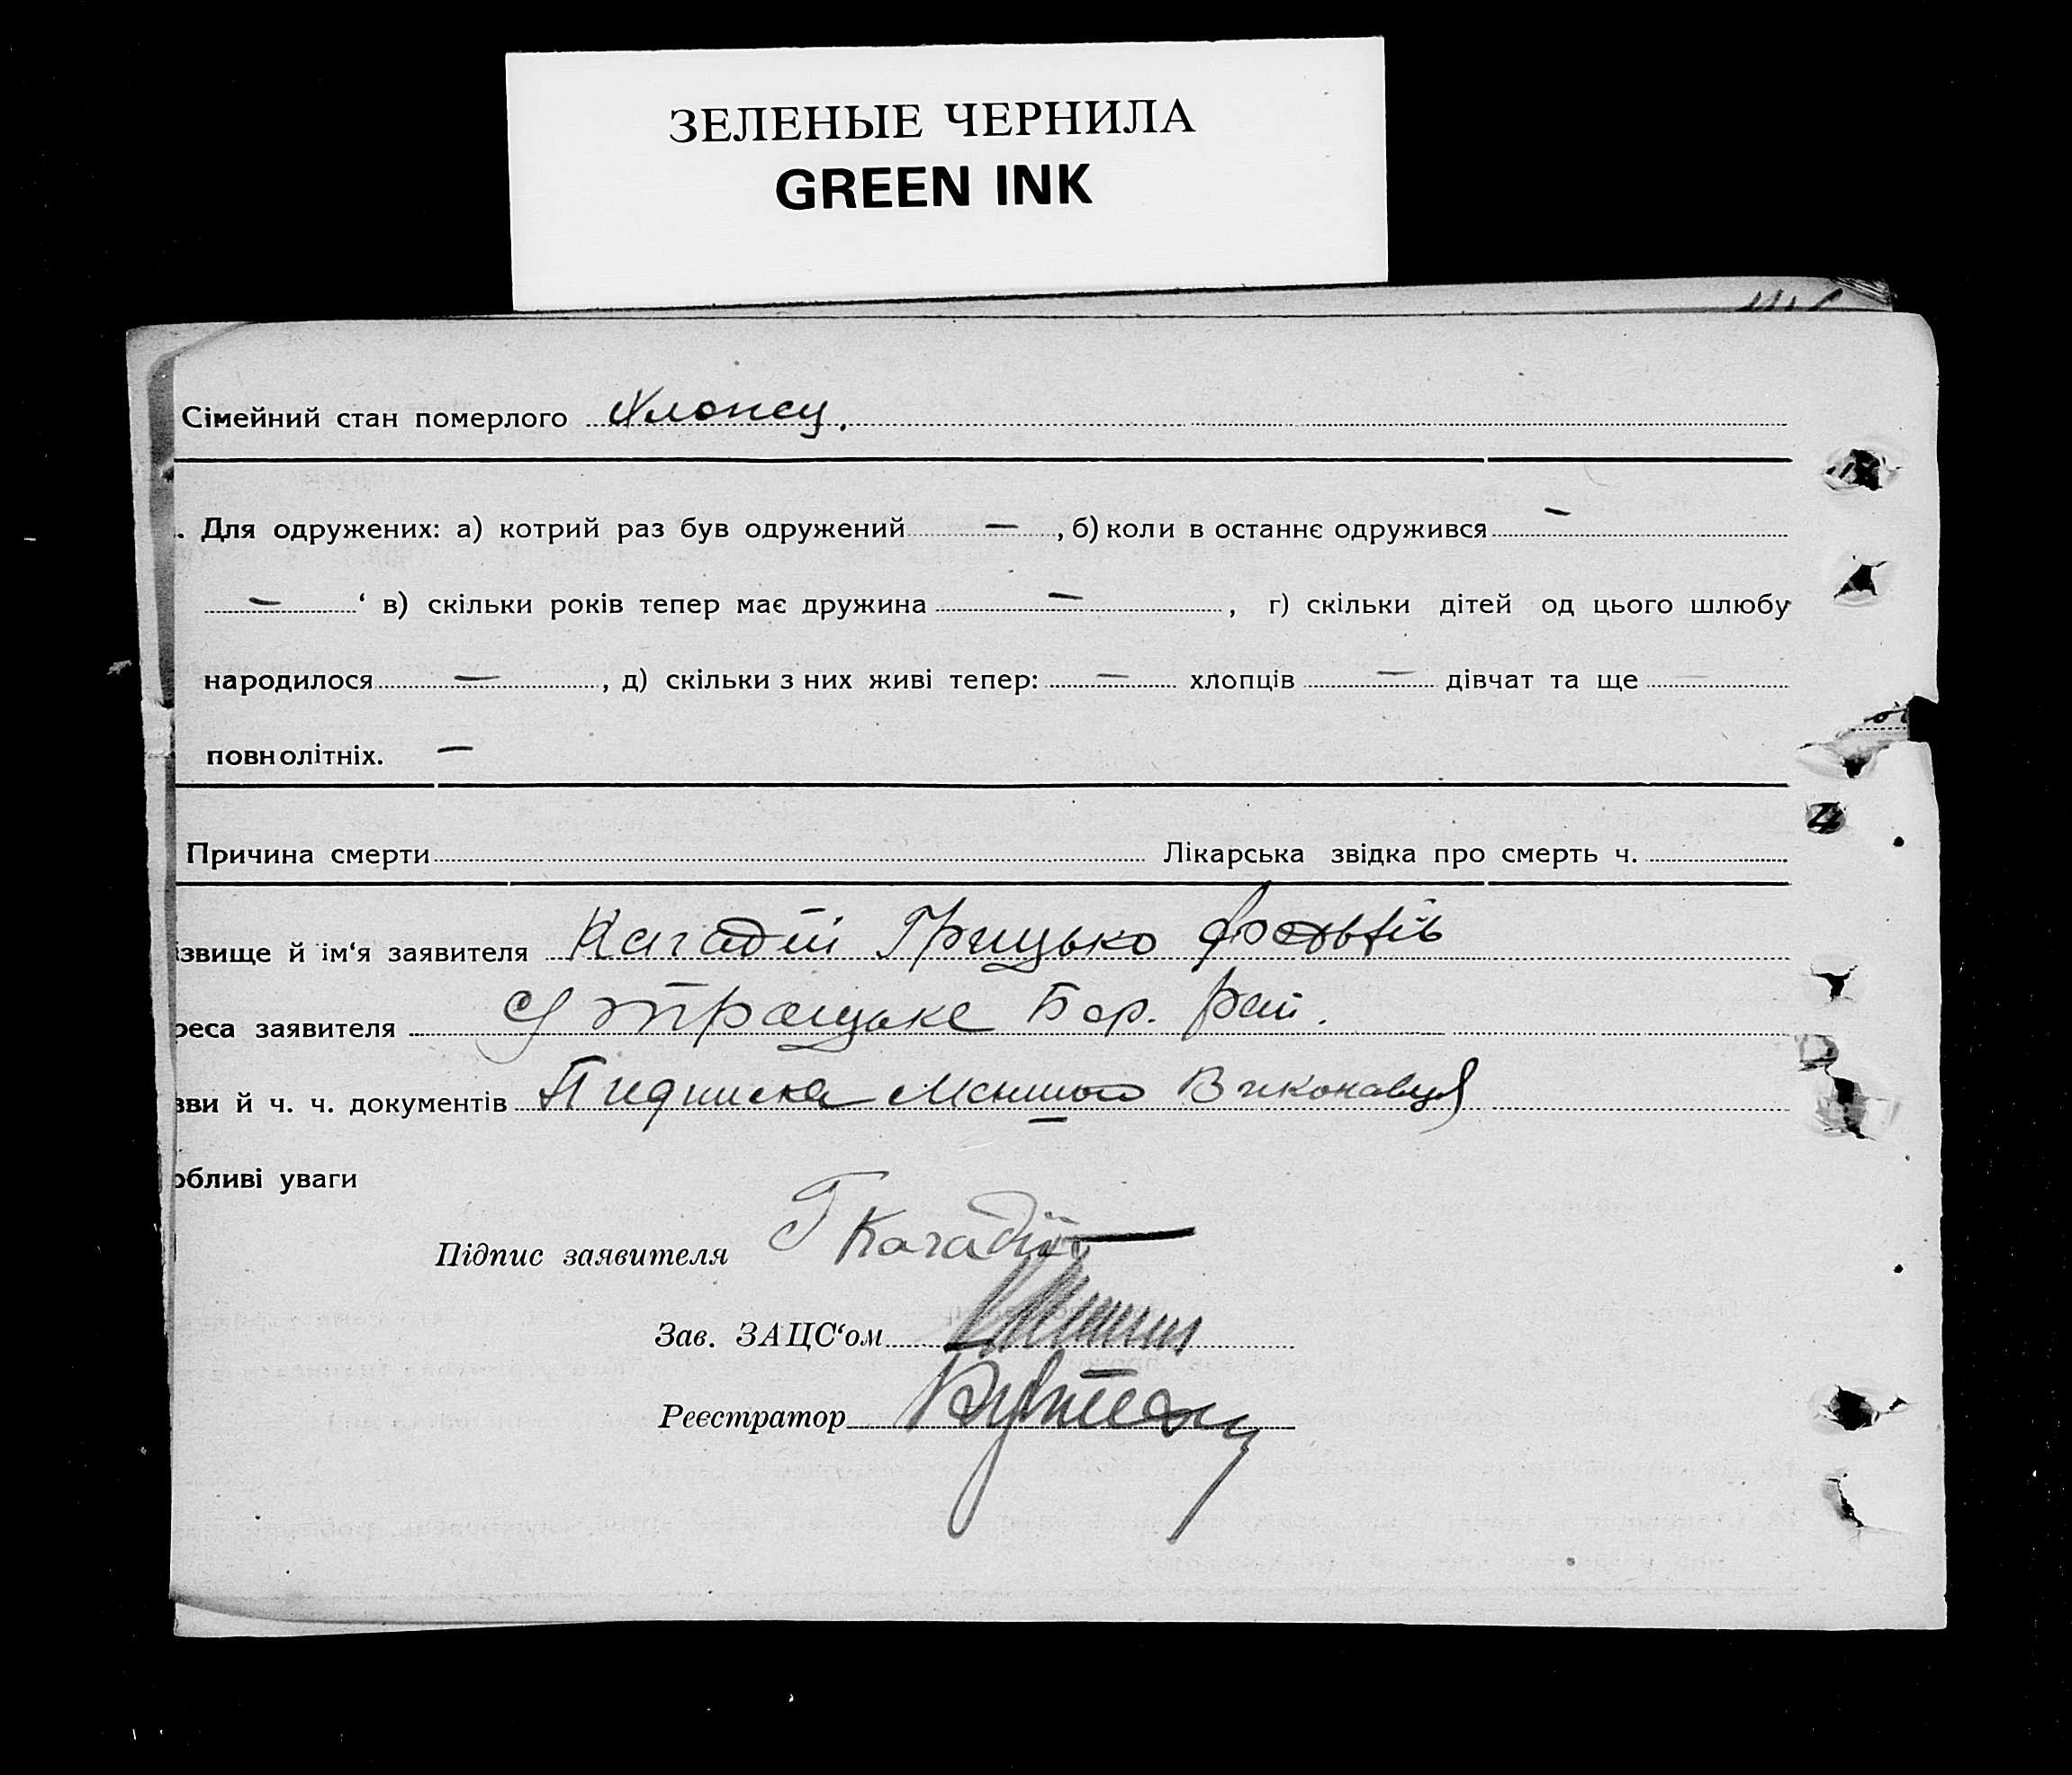 ЗЕЛЕНЫЕ ЧЕРНИЛА
GREEN INK
Сімейний стан померлого Хлопец.
. Для одружених: а) котрий раз був одружений — , б) коли в останнє одружився —
— ‘ в) скільки років тепер має дружина — , г) скільки дітей од цього шлюбу
народилося — , д) скільки з них живі тепер: — хлопців — дівчат та ще —
повнолітніх. —
Причина смерти Лікарська звідка про смерть ч.
ізвище й ім‘я заявителя Кагадій Грицько
реса заявителя Бор. рай.
зви й ч. ч. документів Пидписка Виконавця
обливі уваги
Підпис заявителя Г Кагадій
Зав. ЗАЦС‘ом
Реєстратор